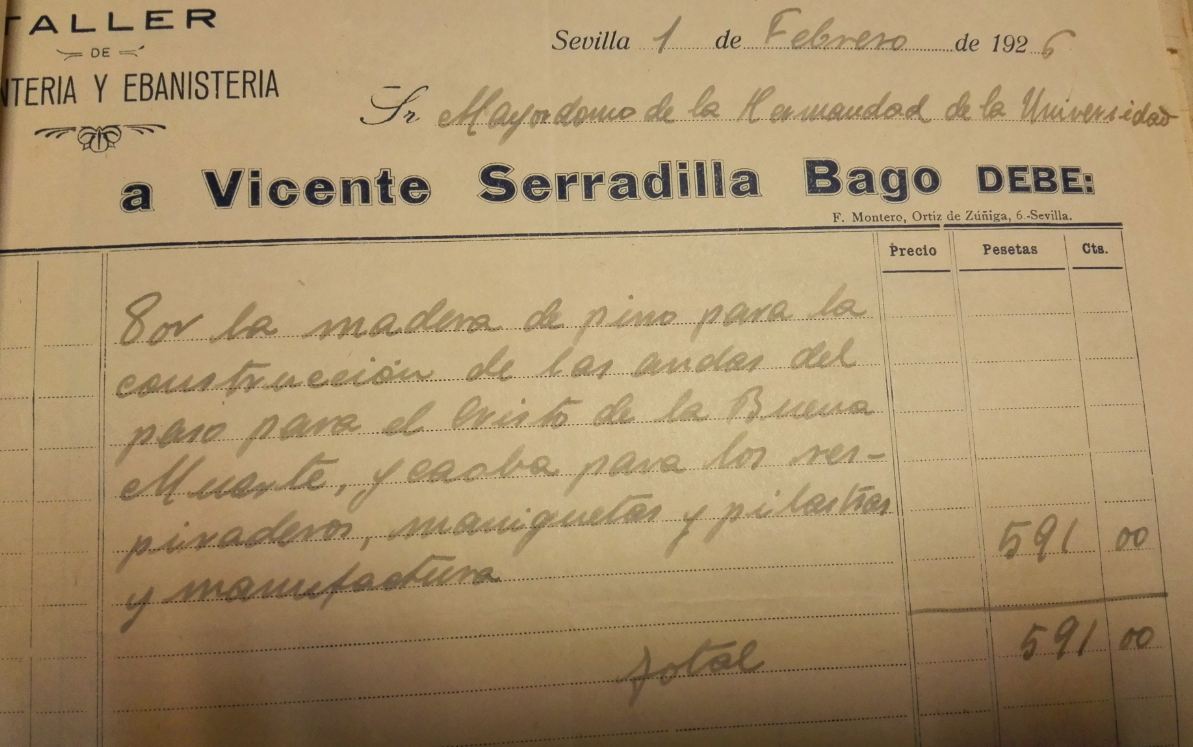 TALLER
DE
NTERIA Y EBANISTERIA
Sevilla 1 de Febrero de 1926
Sr Mayordomo de la Hermandad de la Universidad
a Vicente Serradilla Bago DEBE:
F. Montero, Ortíz de Zúñiga, 6.-Sevilla.
Precio Pesetas Cts.
Por la madera de pino para la
construcción de las andas del
paso para el Cristo de la Buena
Muerte, y caoba para los res-
piraderos, maniguetas y pilastras
y manufactura 591 00
total 591 00